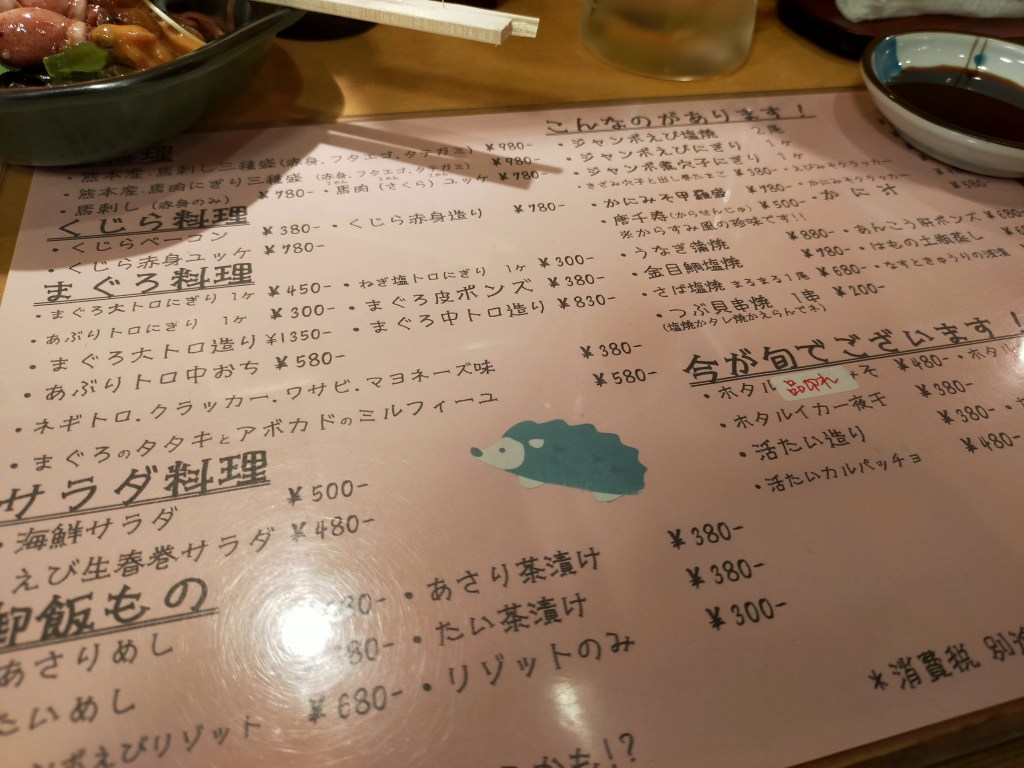 料理
・熊本産・馬刺し三種盛(赤身、フタエゴ、タテガミ) ¥980-
・熊本産・馬肉にぎり三種盛(赤身、フタエゴ、タテガミ) ¥980-
・馬刺し(赤身のみ) ¥780- ・馬肉(さくら)ユッケ ¥780-
くじら料理
・くじらベーコン ¥380- ・くじら赤身造り ¥780-
・くじら赤身ユッケ ¥780-
まぐろ料理
・まぐろ大トロにぎり 1ヶ ¥450- ・ねぎ塩トロにぎり 1ヶ ¥300-
・あぶりトロにぎり 1ヶ ¥300- ・まぐろ皮ポンズ ¥380-
・まぐろ大トロ造り ¥1350- ・まぐろ中トロ造り ¥830-
・あぶりトロ中おち ¥580-
・ネギトロ.クラッカー.ワサビ.マヨネーズ味 ¥380-
・まぐろのタタキとアボカドのミルフィーユ ¥580-
サラダ料理
・海鮮サラダ ¥500-
えび生春巻サラダ ¥480-
御飯もの
あさりめし 80- ・あさり茶漬け ¥380-
たいめし 80- ・たい茶漬け ¥380-
ンボえびリゾット ¥680- ・リゾットのみ ¥300-
こんなのがあります!
・ジャンボえび塩焼 2尾
・ジャンボえびにぎり 1ヶ
・ジャンボ煮穴子にぎり 1ヶ
・きざみ穴子と出し巻たまご ¥380- ・えびみそクラッカー
・かにみそ甲羅焼 ¥780- ・かにみそクラッカー
・唐千寿(からせんじゅ) ¥500- ・かに爪 ¥580-
※からすみ風の珍味です!!
・うなぎ蒲焼 ¥880- ・あんこう肝ポンズ ¥680
・金目鯛塩焼 ¥980- ・はもの土瓶蒸し
・さば塩焼 まるまる1尾 ¥680- ・なすときゅうりの浅漬
・つぶ貝串焼 1串 ¥200-
(塩焼かタレ焼かえらんでネ)
今が旬でございます!
・ホタル 品切れ そ ¥480- ・ホタル
・ホタルイカ一夜干 ¥380-
・活たい造り ¥380-
・活たいカルパッチョ ¥480-
*消費税 別
かも!?